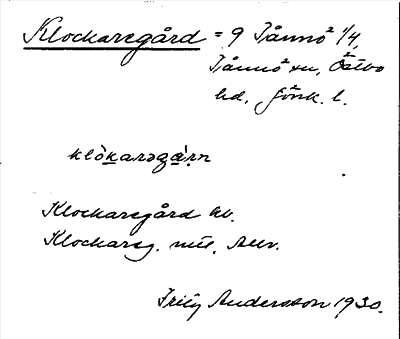 Klockaregård = 9 Tånnö 1/4,
Tånnö sn, Östbo
hd, Jönk. l.
klòkarəgạ̊:ṛn
Klockaregård hv.
Klockareg. mtl.
Andersson 1930.